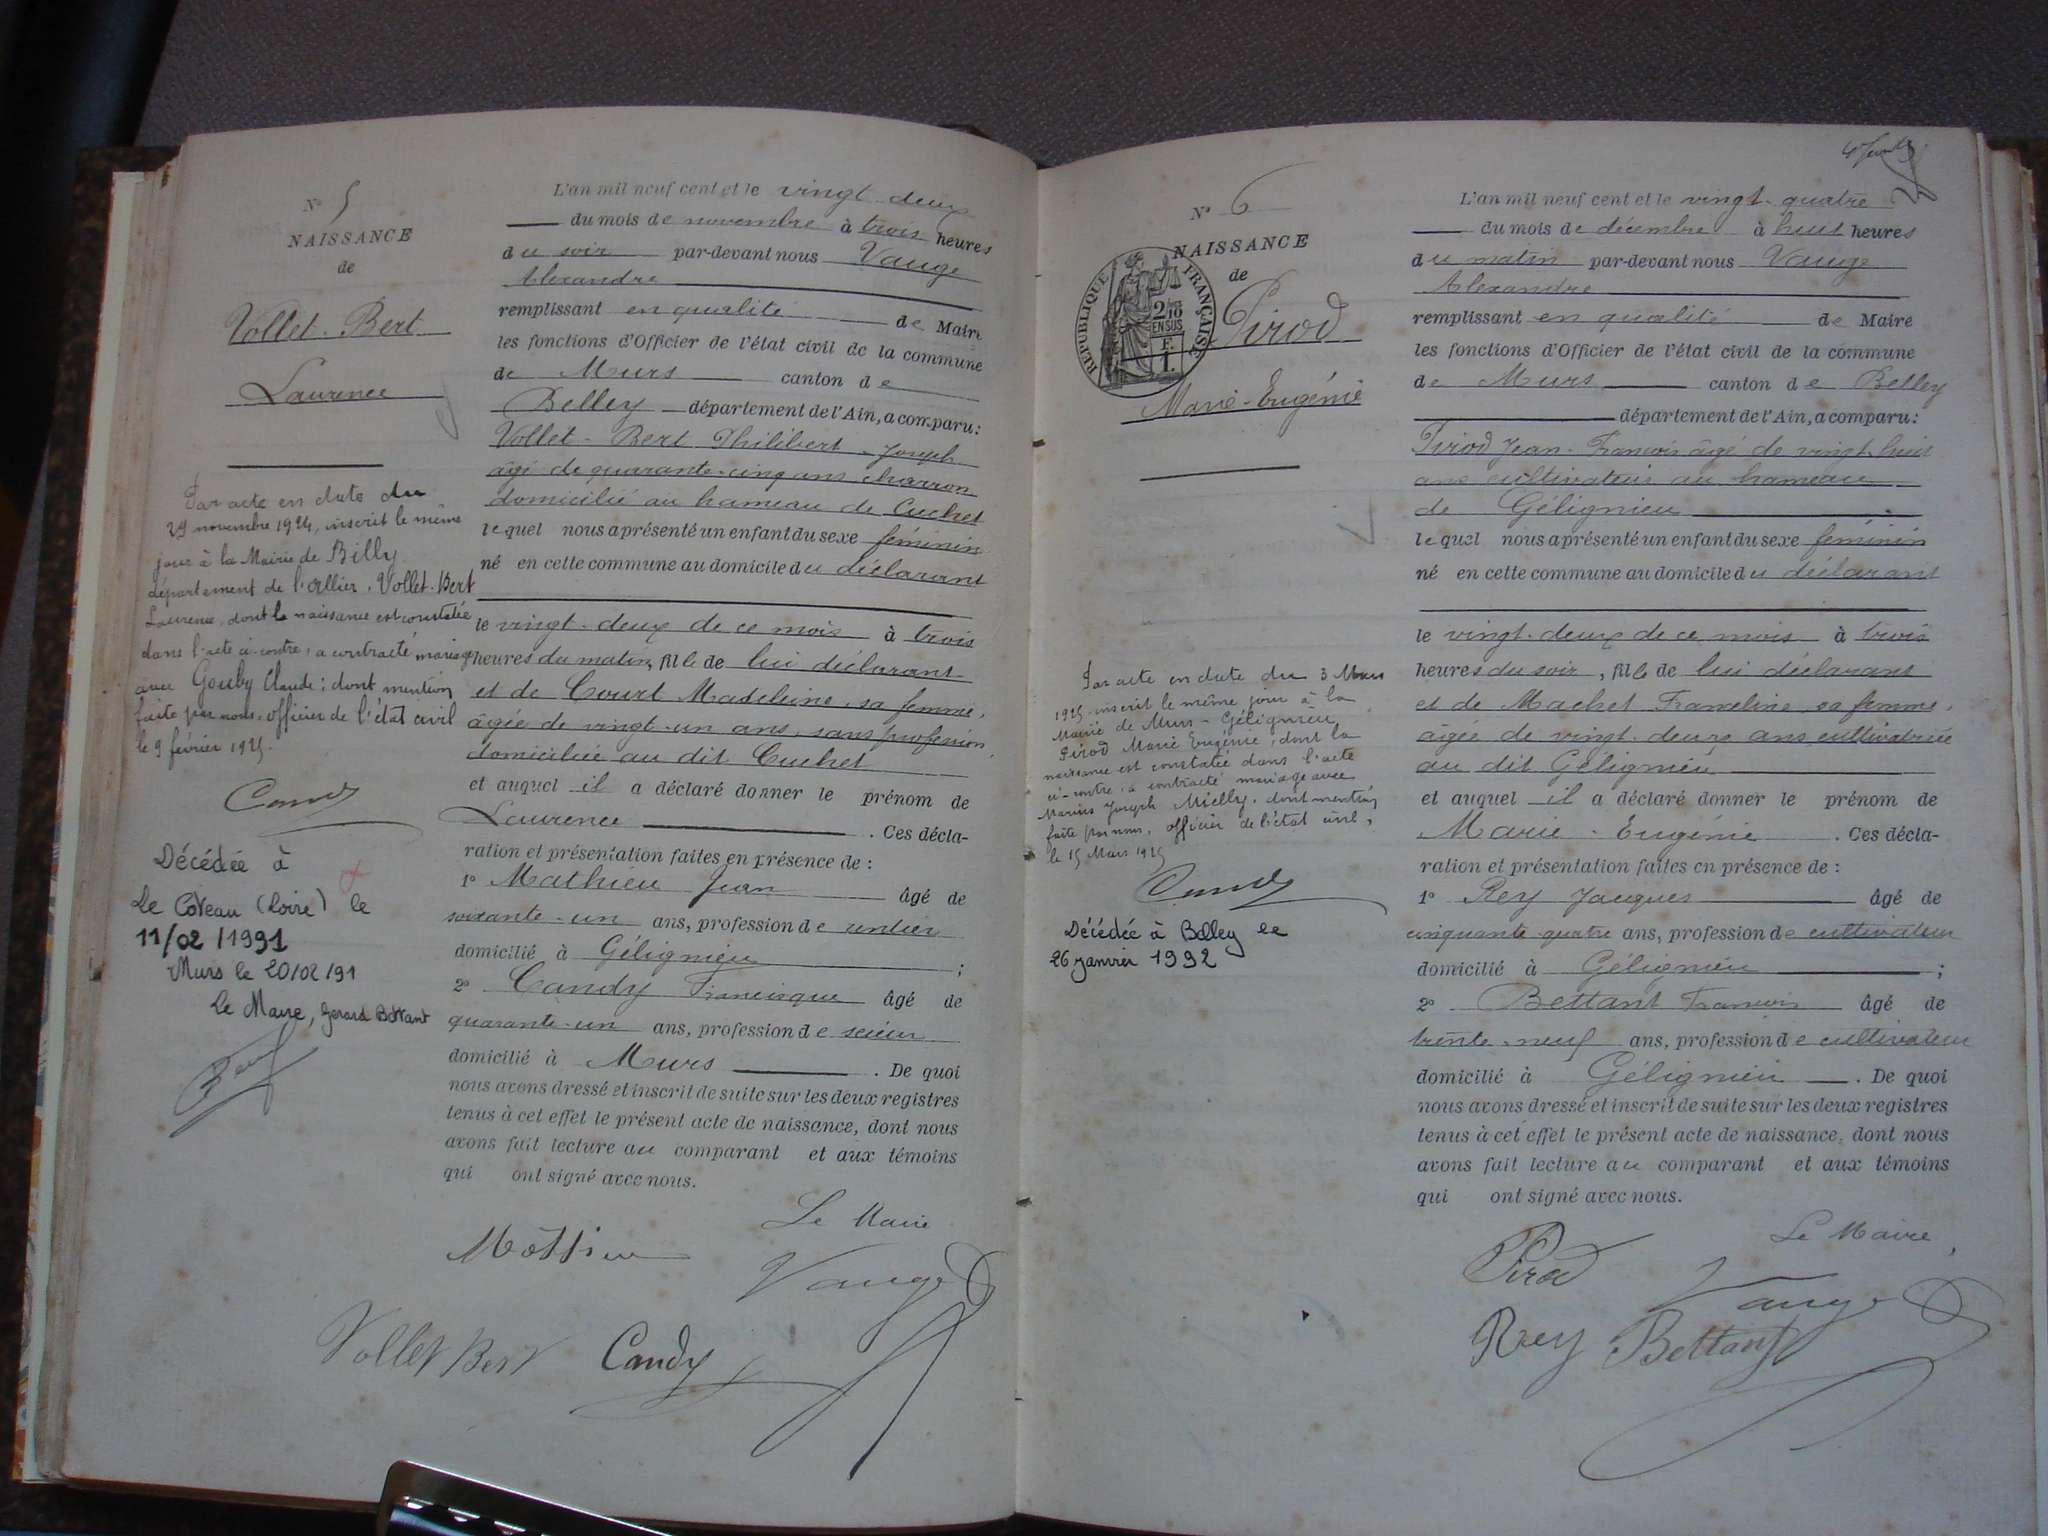 N° 5
NAISSANCE
de
Vollet-Bert
Laurence
Par acte en date du
29 novembre 1924, inscrit le même
jour à la Mairie de Billy
département de l'Allier, Vollet-Bert
Laurence, dont la naissance est constatée
dans l'acte ci-contre, a contracté mariage
avec Gouby Claude; dont mention
faite par nous, officier de l'état civil
le 9 février 1925.
Décédée à
Le Coteau (Loire) le
11/02/1991
Murs le 20/02/91
Le Maire, Gerard Bettant
L'an mil neuf cent et le vingt-deux
du mois de novembre à trois heures
du soir par-devant nous Vauge
Alexandre
remplissant en qualité de Maire
les fonctions d'Officier de l'état civil de la commune
de Murs canton de
Belley département de l'Ain, a comparu:
Vollet-Bert Philibert-Joseph
âgé de quarante-cinq ans charron
domicilié au hameau de Cuchet
lequel nous a présenté un enfant du sexe féminin
né en cette commune au domicile du déclarant
le vingt-deux de ce mois à trois
heures du matin, fille de lui déclarant
et de Court Madeleine, sa femme,
âgée de vingt-un ans, sans profession,
domiciliée au dit Cuchet
et auquel il a déclaré donner le prénom de
Laurence . Ces décla-
ration et présentation faites en présence de :
1° Mathieu Jean âgé de
soixante-un ans, profession de
domicilié à Gélignieu ;
2° Candy Francisque âgé de
quarante-un ans, profession de scieur
domicilié à Murs . De quoi
nous avons dressé et inscrit de suite sur les deux registres
tenus à cet effet le présent acte de naissance, dont nous
avons fait lecture au comparant et aux témoins
qui ont signé avec nous.
Le Maire
Vauge
Vollet Bert Candy
N° 6
NAISSANCE
de
REPUBLIQUE FRANÇAISE
2/10
EN SUS
F.
1.
Pirod
Marie-Eugénie
Par acte en date du 3 Mars
1925 inscrit le même jour à la
Mairie de Murs-Gélignieu
Pirod Marie Eugénie, dont la
naissance est constatée dans l'acte
ci-contre, a contracté mariage avec
Marius Joseph Mielly, dont mention
faite par nous, officier de l'état civil,
le 15 Mars 1925
Décédée à Belley le
26 janvier 1992
L'an mil neuf cent et le vingt-quatre
du mois de décembre à huit heures
du matin par-devant nous Vauge
Alexandre
remplissant en qualité de Maire
les fonctions d'Officier de l'état civil de la commune
de Murs canton de Belley
département de l'Ain, a comparu:
Pirod Jean-François âgé de vingt-huit
ans cultivateur au hameau
de Gélignieu
lequel nous a présenté un enfant du sexe féminin
né en cette commune au domicile du déclarant
le vingt-deux de ce mois à trois
heures du soir, fille de lui déclarant
et de Machet Franceline, sa femme,
âgée de vingt-deux ans cultivatrice
au dit Gélignieu
et auquel il a déclaré donner le prénom de
Marie-Eugénie . Ces décla-
ration et présentation faites en présence de :
1° Rey Jacques âgé de
cinquante-quatre ans, profession de cultivateur
domicilié à Gélignieu ;
2° Bettant François âgé de
trente-neuf ans, profession de cultivateur
domicilié à Gélignieu . De quoi
nous avons dressé et inscrit de suite sur les deux registres
tenus à cet effet le présent acte de naissance, dont nous
avons fait lecture au comparant et aux témoins
qui ont signé avec nous.
Le Maire,
Pirod Vauge
Rey Bettant